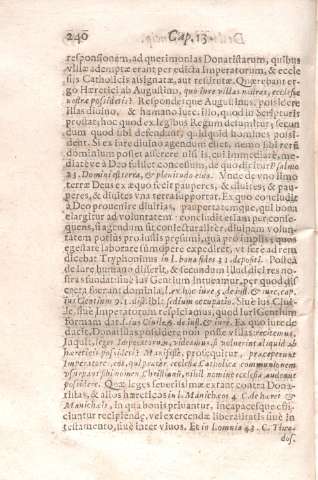 240 Cap. 13.
responsionem, ad querimonias Donatistarum, quibus
villæ ademptæ erant per edicta Imperatorum, & eccle
sijs Catholicis assignatæ, aut restitutæ. Quærebant er-
go Hæretici ab Augustino, quo iure villas nostras, ecclesiæ
vestræ possideret? Respondet que Augustinus, possidere
illas diuino, & humano iure. illo, quod in Scripturis
prostat, hoc quod ex legibus Regum desumitur, secun
dum quod sibi defendunt, quidquid homines possi-
dent. Si ex iure diuino agendum esset, nemo sibi rerum
dominium posset asserere nisi is, cui immediate, me-
diate ve à Deo fuisset concessum, de quo dicitur Psalmo
23. Domini est terra, & plenitudo eius. Vnde de vno limo
terræ Deus ex æquo fecit pauperes, & diuites; & pau-
peres, & diuites vna terra supportat. Ex quo concludit
à Deo prouenire diuitias, paupertatemque, qui bona
elargitur ad voluntatem concludit etiam per conse-
quens, si agendum sit
tatem potius pro iustis præsumi, quà pro impijs; quos
egestate laborare summopere expediret, vt
dicebat Tryphoninus in l. bona fides 31. depositi. Postea
de iure humano disserit, & secundum illud dici res no-
stras fundati sumus iure Gentium
creta fuerant dominia, l. ex hoc iure 5. de iust. & iure, cap.
ius Gentium 9. 1. dist. ibi: sedium occupatio. Siuè ius Ciui-
le, siuè Imperatorum respiciamus, quod iuri Gentium
formam dat l. ius Ciuile 6. de iust. & iure. Ex quo iure de
ductè, Donatistas possidere non posse villas
inquit, leges Imperatorum, videamus, si voluerint aliquid ab
hæreticis possideri? Maximè, prosequitur, præceperunt
Imperatores, eos, qui præter ecclesiæ Catholicæ communionem
vsurpant sibi nomen Christiani, nihil nomine ecclesiæ audeant
possidere. Quæ leges seuerissimæ extant contra Dona-
tistas, & alios hæreticos in l. Manichæos 4. C. de hæret. &
Manichæis, in qua bonis priuantur, incapacesque effi-
ciuntur recipiendæ, vel exercendæ liberalitatis siuè in
testamento, siuè inter viuos. Et in l. omnia 43. C. Theo-
dos.